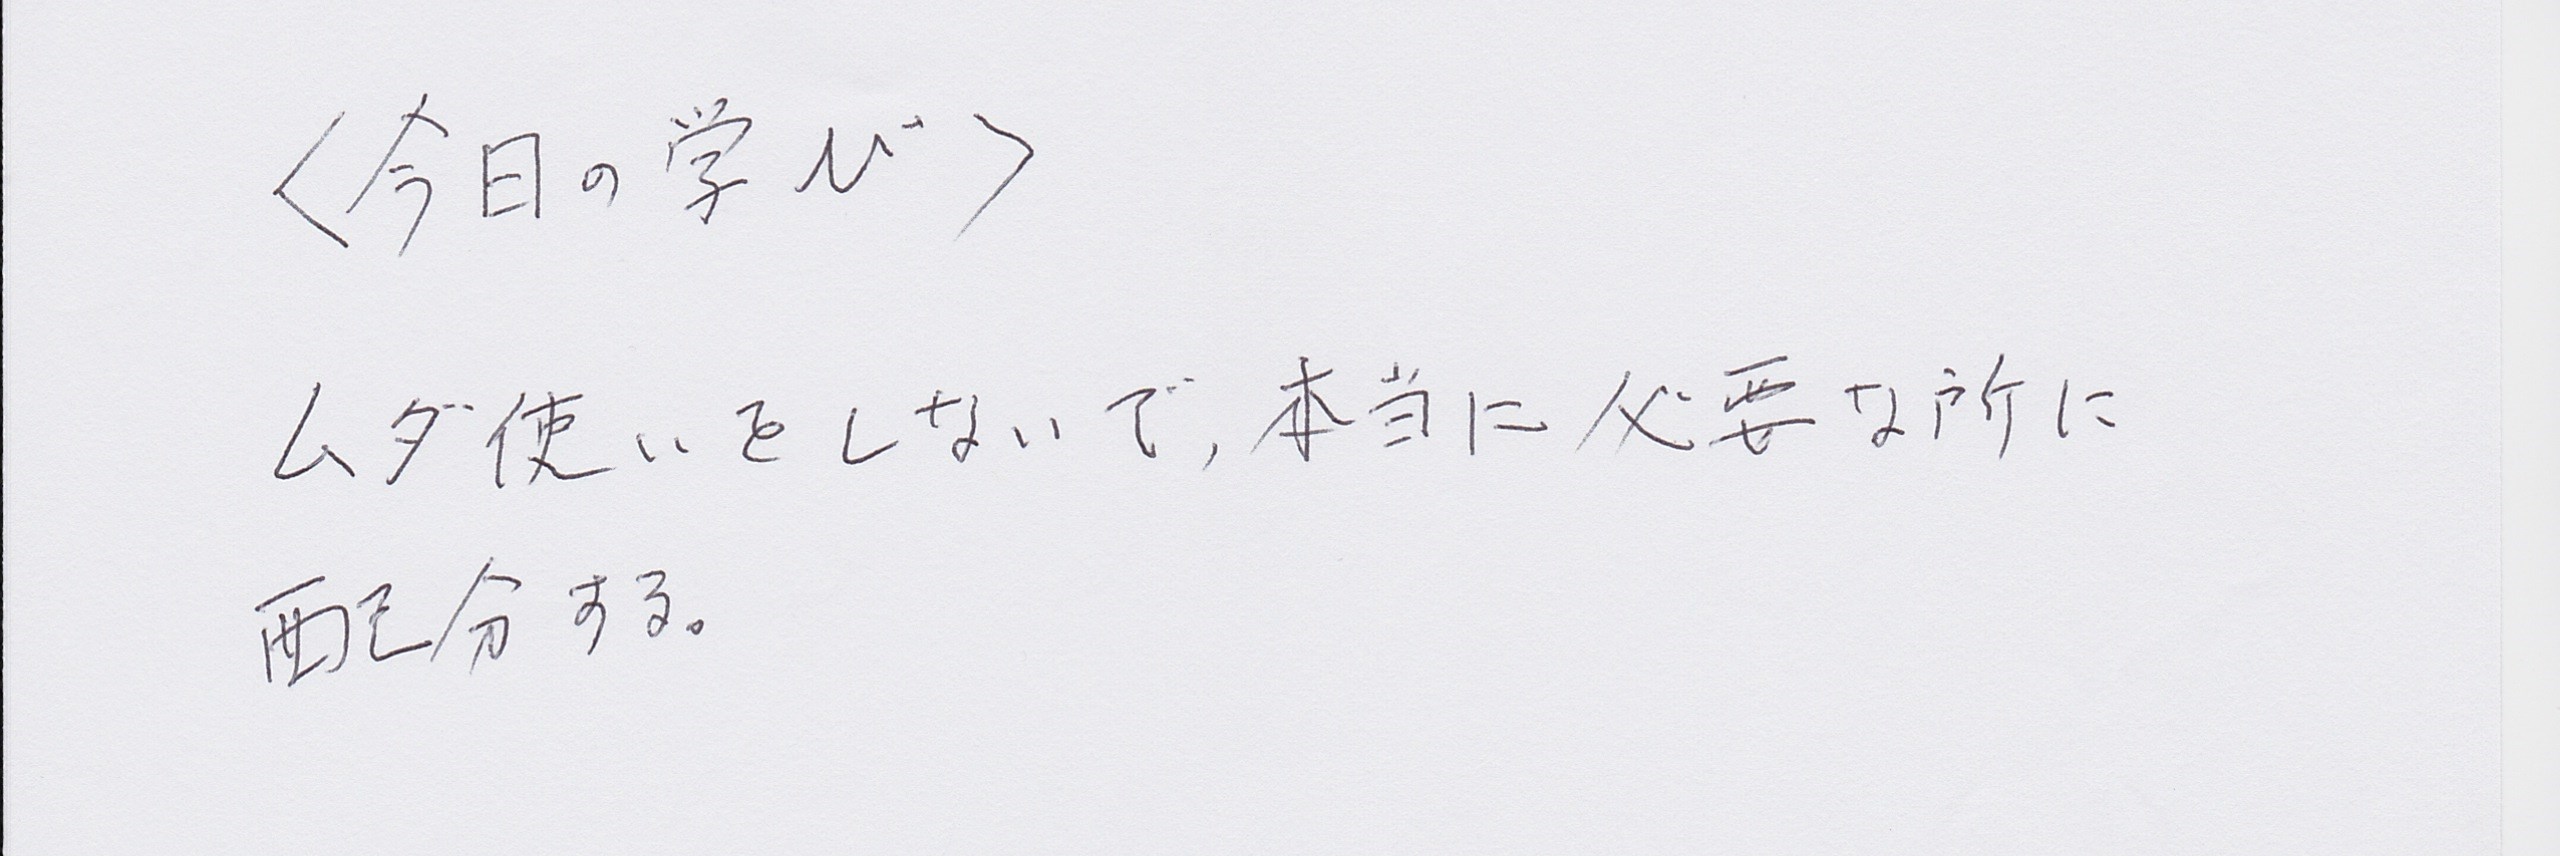 〈今日の学び〉
ムダ使いをしないで,本当に必要な所に
配分する。